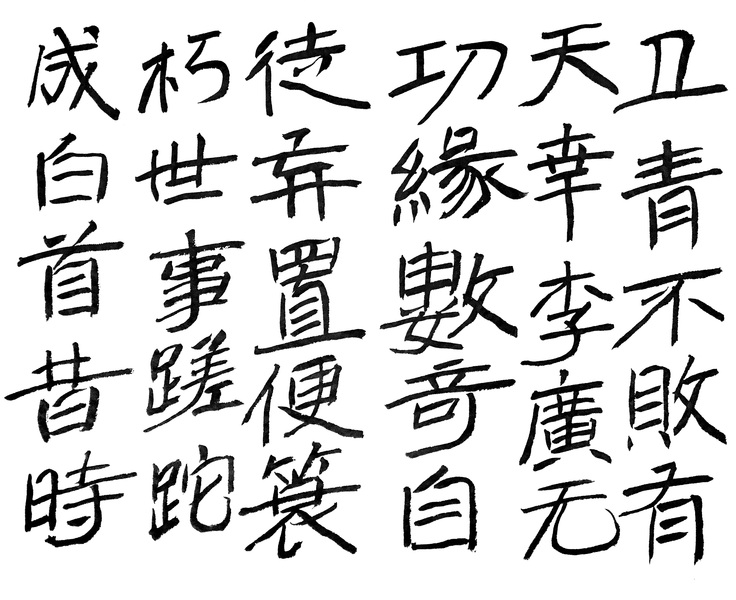 卫青不敗有
天幸李廣无
功緣數奇自
徒弃置便簑
朽世事蹉跎
成白首昔時